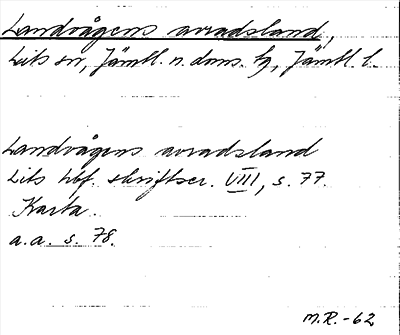 Landvågens avradsland,
Lits sn, Jämtl. n. doms. tg, Jämtl. l.
Landvågens avradsland
Lits hbf. skriftser. VIII, s. 77.
Karta.
a.a. s. 78.
M.R. -62